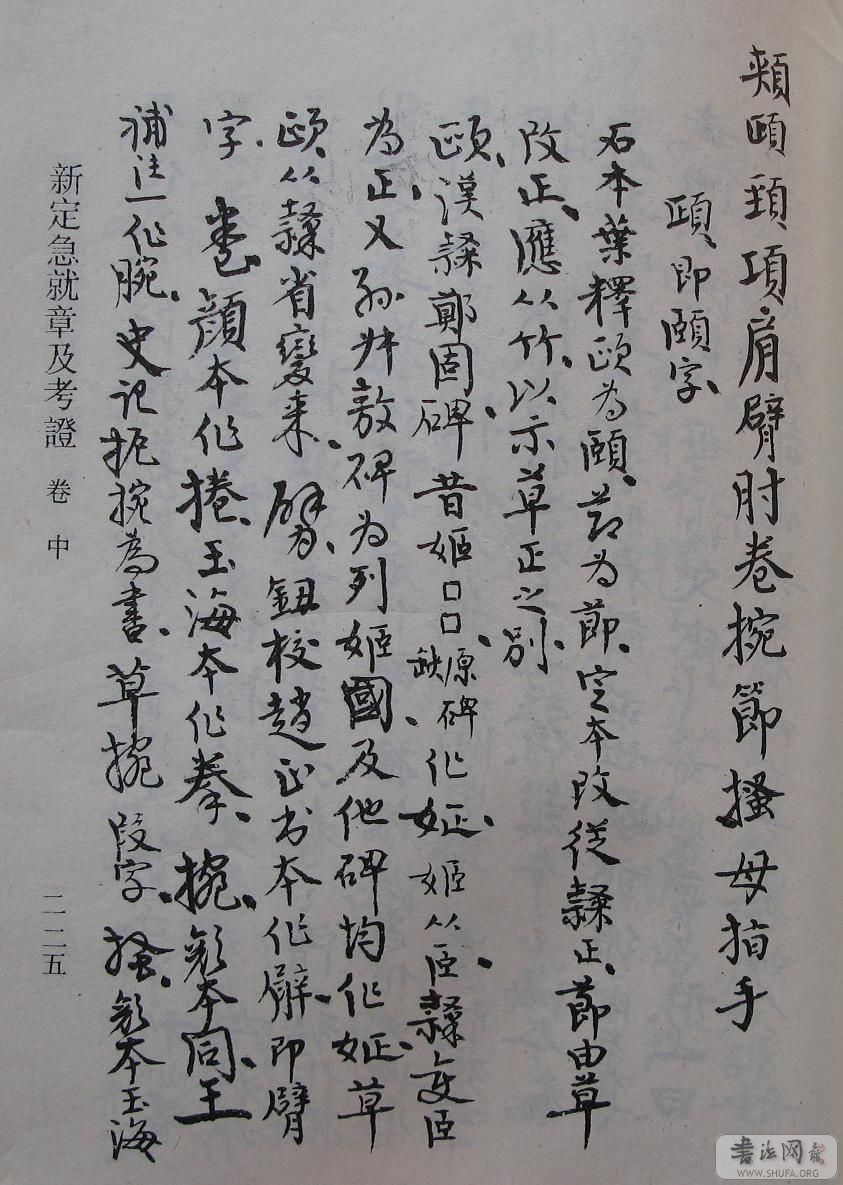 頰頤頸項肩臂肘卷捥節搔母指手
頤即頤字
石本葉釋頤為頤莭為節定本改從隸正節由草
改正應从竹以示草正之別
頤漢隸鄭固碑昔姬口口缺源碑作姃姬从𦣝隸变臣
為正又孙叔敖碑為列姬國及他碑均作姃草
頤从隸省變来臂鈕校趙正书本作臂即臂
字卷顏本作捲玉海本作拳捥顏本同王
補注一作腕史记扼捥為書草捥改字搔顏本玉海
新定急就章及考證 卷中
二二五
書法网
WWW.SHUFA.ORG